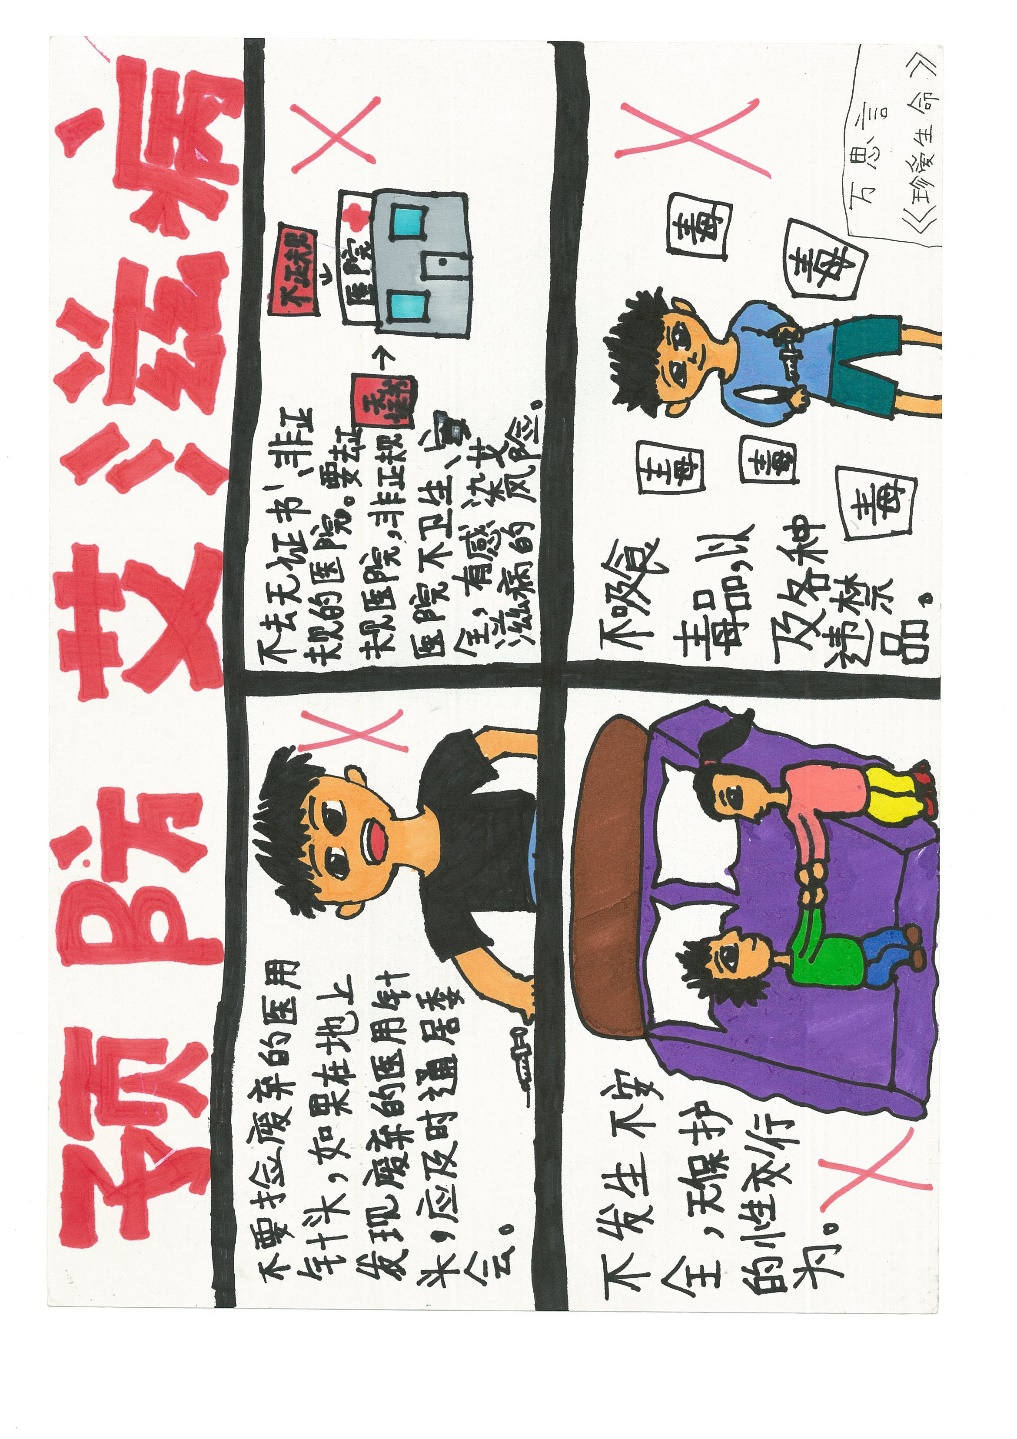 预防艾滋病
不要捡废弃的医用
针头,如果在地上
发现废弃的医用针
头,应及时通居委
会。
不去无证书、非正
规的医院。要去正
规医院,非正规
医院不卫生、安
全,有感染艾
滋病的风险。
不正规
医院
无证书
不发生不安
全,无保护
的性交行
为。
不吸食
毒品,以
及各种
违禁
品。
毒
毒
毒
毒
毒
万思言
《珍爱生命》